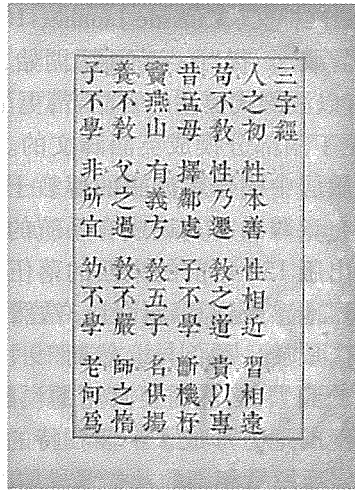 三字經
人之初 性本善 性相近 習相遠
苟不教 性乃遷 教之道 貴以專
昔孟母 擇鄰處 子不學 斷機杼
竇燕山 有義方 教五子 名俱揚
養不教 父之過 教不嚴 師之惰
子不學 非所宜 幼不學 老何爲